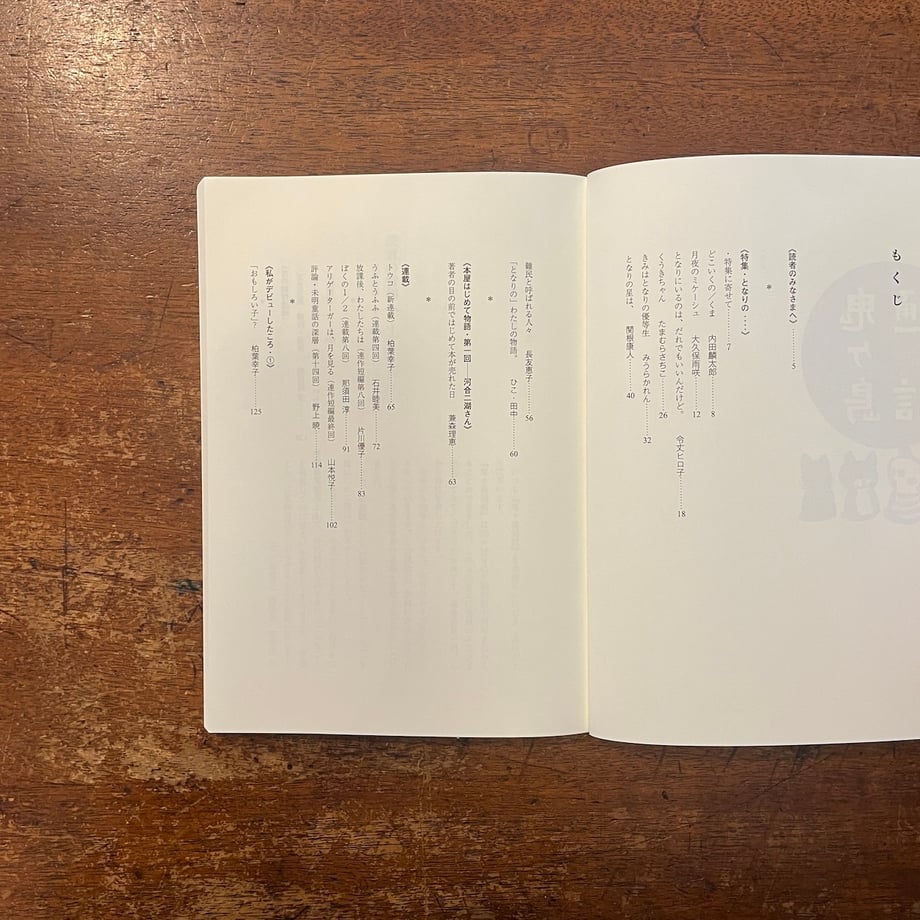 もくじ
《読者のみなさまへ》………5
*
《特集・となりの・・・》
・特集に寄せて………7
どこいくの／くま　内田麟太郎………8
月夜のミケージュ　大久保雨咲………12
となりにいるのは、だれでもいいんだけど。　令丈ヒロ子………18
くぅきちゃん　たまむらさちこ………26
きみはとなりの優等生　みうらかれん………32
となりの星は、　関根康人………40
難民と呼ばれる人々　長友恵子………56
「となりの」わたしの物語。　ひこ・田中………60
*
《本屋はじめて物語・第一回――河合二湖さん》
著者の目の前ではじめて本が売れた日　兼森理恵………63
*
《連載》
トウコ（新連載）　柏葉幸子………65
うふとうふ（連載第四回）　石井睦美………72
放課後、わたしたちは（連作短編第八回）　片川優子………83
ぼくの1／2（連載第八回）　那須田淳………91
アリゲーターガーは、月を見る（連作短編最終回）　山本悦子………102
評論・未明童話の深層（第十四回）　野上暁………114
*
《私がデビューしたころ・①》
「おもしろい子」？　柏葉幸子………125
鬼ヶ島
通信